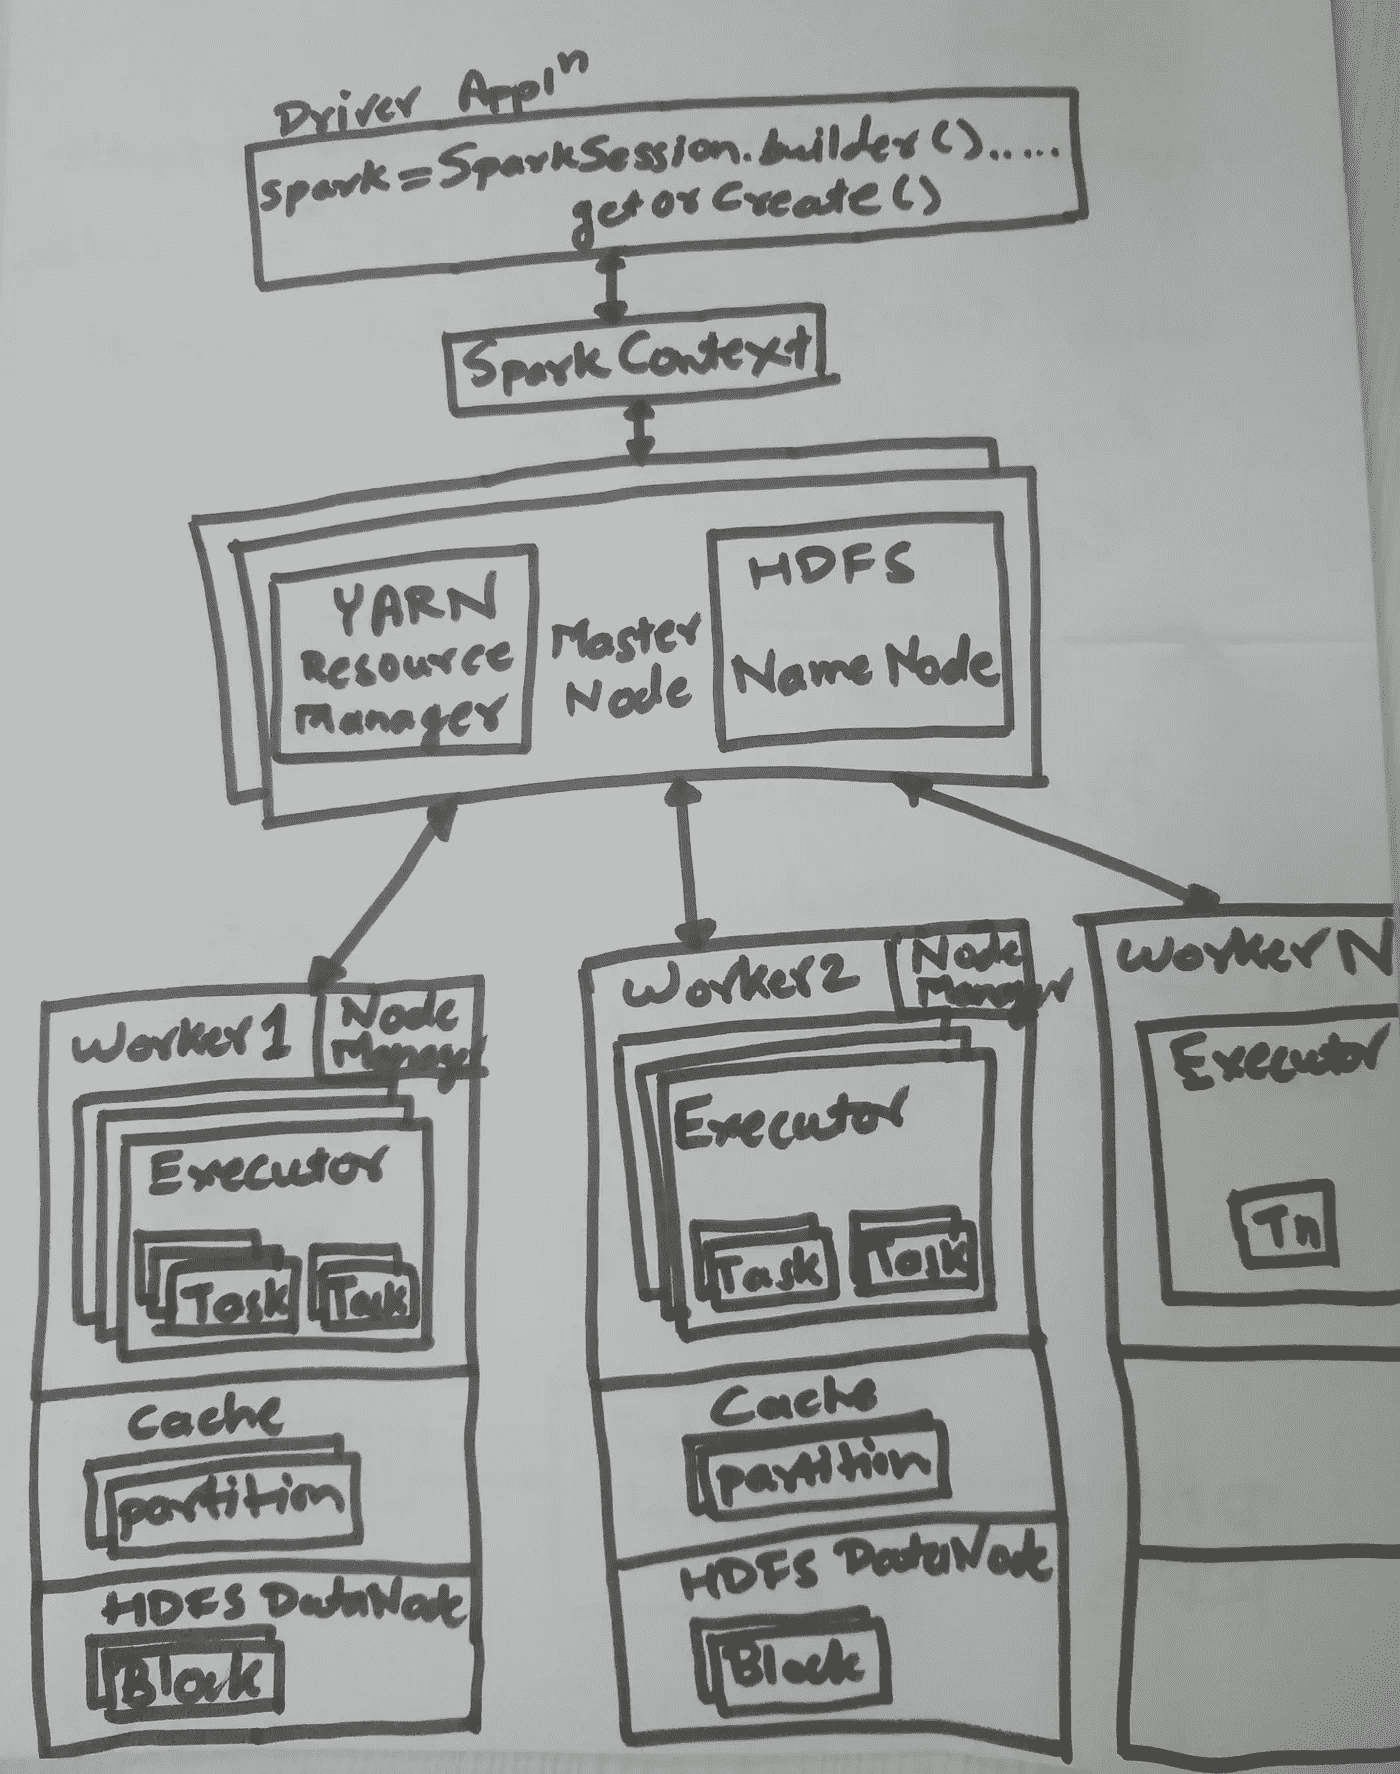 Driver Applⁿ
spark = SparkSession.builder().....
getorCreate()
Spark Context
YARN
Resource
Manager
Master
Node
HDFS
Name Node
Worker 1
Node
Manager
Executor
Task
Task
Cache
partition
HDFS DataNode
Block
Worker 2
Node
Manager
Executor
Task
Task
Cache
partition
HDFS DataNode
Block
Worker N
Executor
Tn